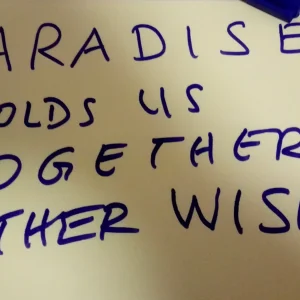 ARADISE
OLDS US
OGETHER
THER WIS